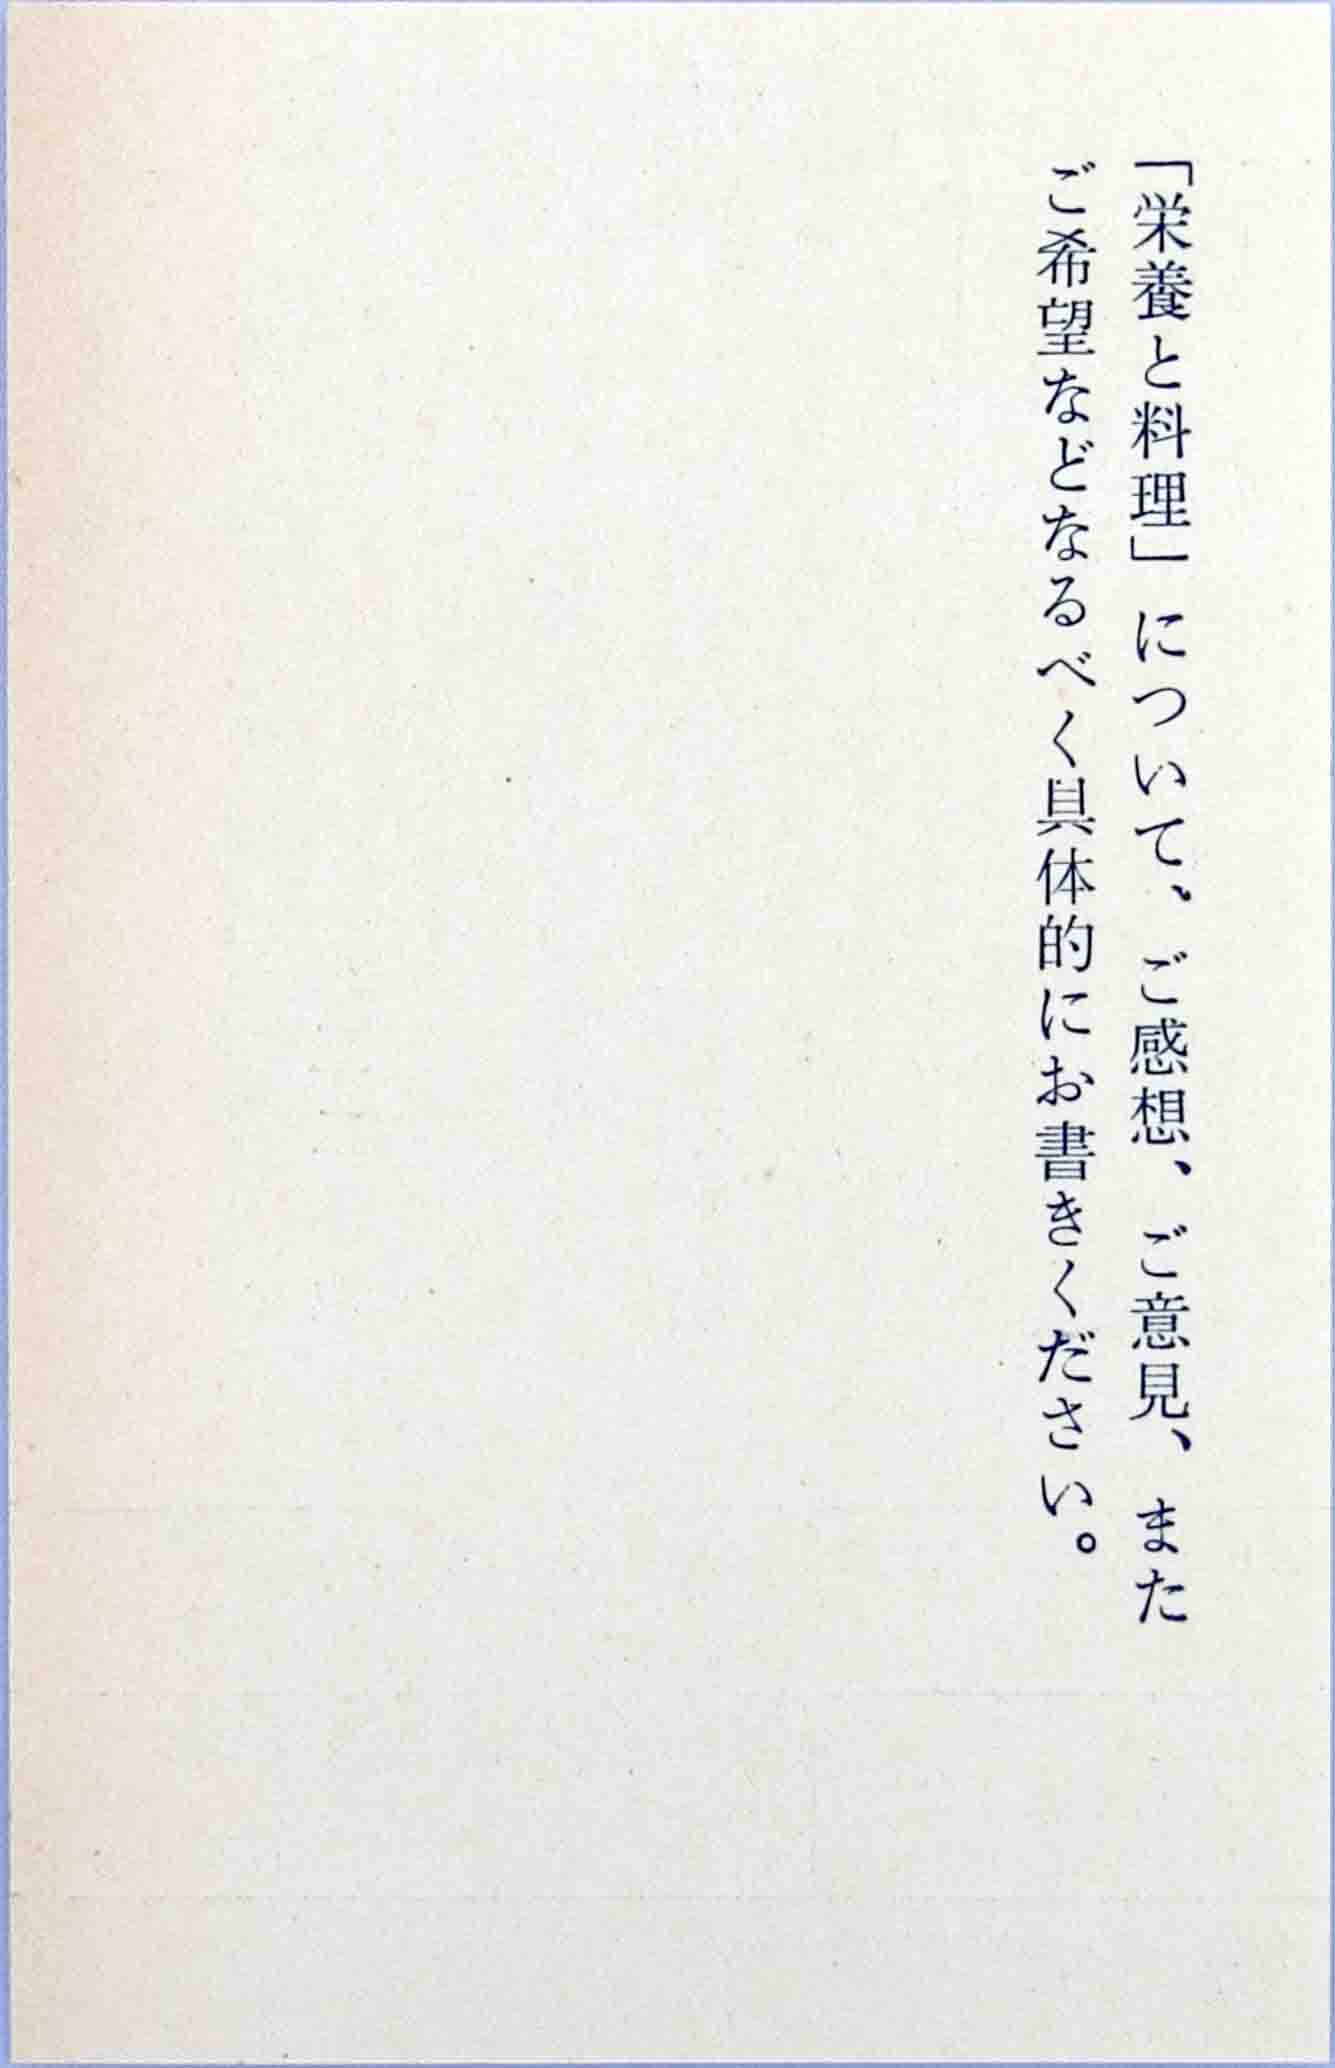 「栄養と料理」について。ご感想、ご意見、また
ご希望などなるべく具体的にお書きください。